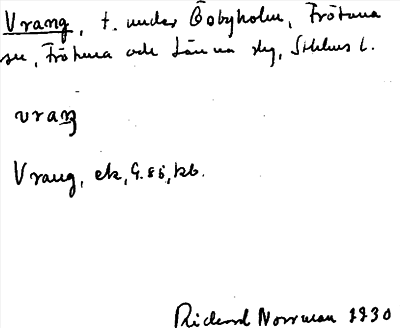 Vrang, t. under Östbyholm, Frötuna
sn, Frötuna och Länna skg, Sthlms l.
vraŋ
Vrang, ek, G.
Rickard Norrman 1930